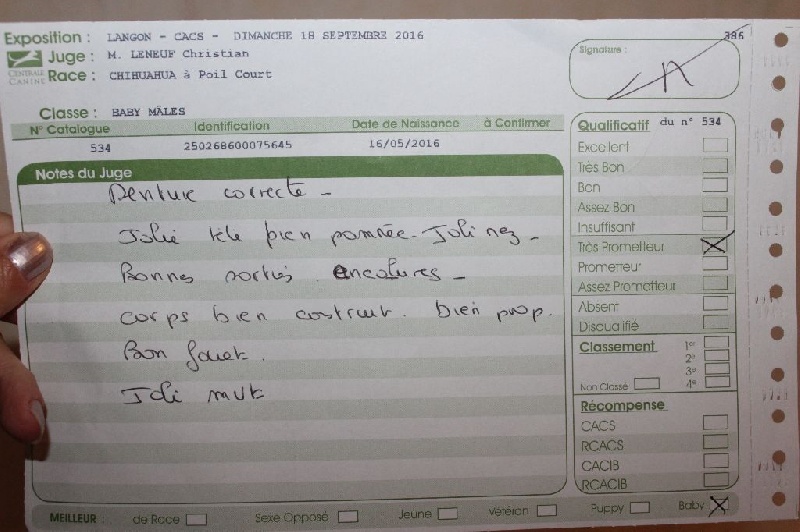 Exposition : LANGON - CACS - DIMANCHE 18 SEPTEMBRE 2016
386
Juge : M. LENEUF Christian
CENTRALE CANINE
Race : CHIHUAHUA à Poil Court
Signature :
Classe : BABY MÂLES
N° Catalogue Identification Date de Naissance à Confirmer
534 250268600075645 16/05/2016
Notes du Juge
Denture correcte -
Jolie tête bien pommée - Joli nez -
Bonnes encolures -
Corps bien bien prop.
Bon fouet.
Joli
Qualificatif du n° 534
Excellent
Très Bon
Bon
Assez Bon
Insuffisant
Très Prometteur
Prometteur
Assez Prometteur
Absent
Disqualifié
Classement 1er
2e
3e
Non Classé 4e
Récompense
CACS
RCACS
CACIB
RCACIB
MEILLEUR : de Race Sexe Opposé Jeune Vétéran Puppy Baby